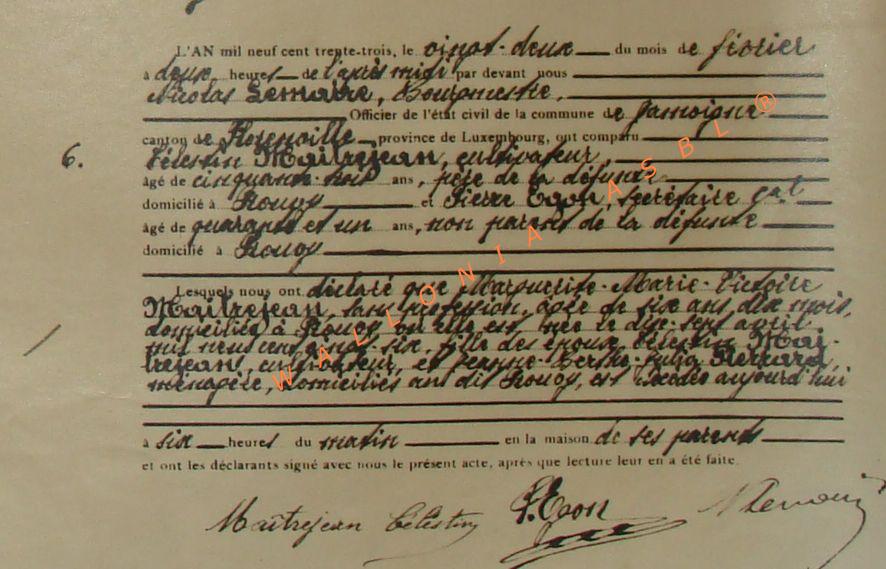 L'AN mil neuf cent trente-trois, le vingt-deux du mois de février
à deux heures de l'après midi par devant nous
Nicolas Lemaire, Bourgmestre,
Officier de l'état civil de la commune de Jamoigne
canton de Florenville province de Luxembourg, ont comparu
6. Célestin Maitrejean, cultivateur,
âgé de cinquante-huit ans, père de la défunte
domicilié à Prouvy et Pierre Egon, secrétaire cal
âgé de quarante et un ans, non parent de la défunte
domicilié à Prouvy
Lesquels nous ont déclaré que Marguerite-Marie-Victoire
Maitrejean, sans profession, âgée de six ans, dix mois,
domiciliée à Prouvy où elle est née le dix-sept avril
mil neuf cent vingt-six, fille des époux Célestin Mai-
trejean, cultivateur, et Jeanne-Berthe-Julia
ménagère, domiciliés au dit Prouvy, est décédée aujourd'hui
à six heures du matin en la maison de ses parents
et ont les déclarants signé avec nous le présent acte, après que lecture leur en a été faite.
Maîtrejean Célestin P. Egon N Lemaire
WALLONIA ASBL ®